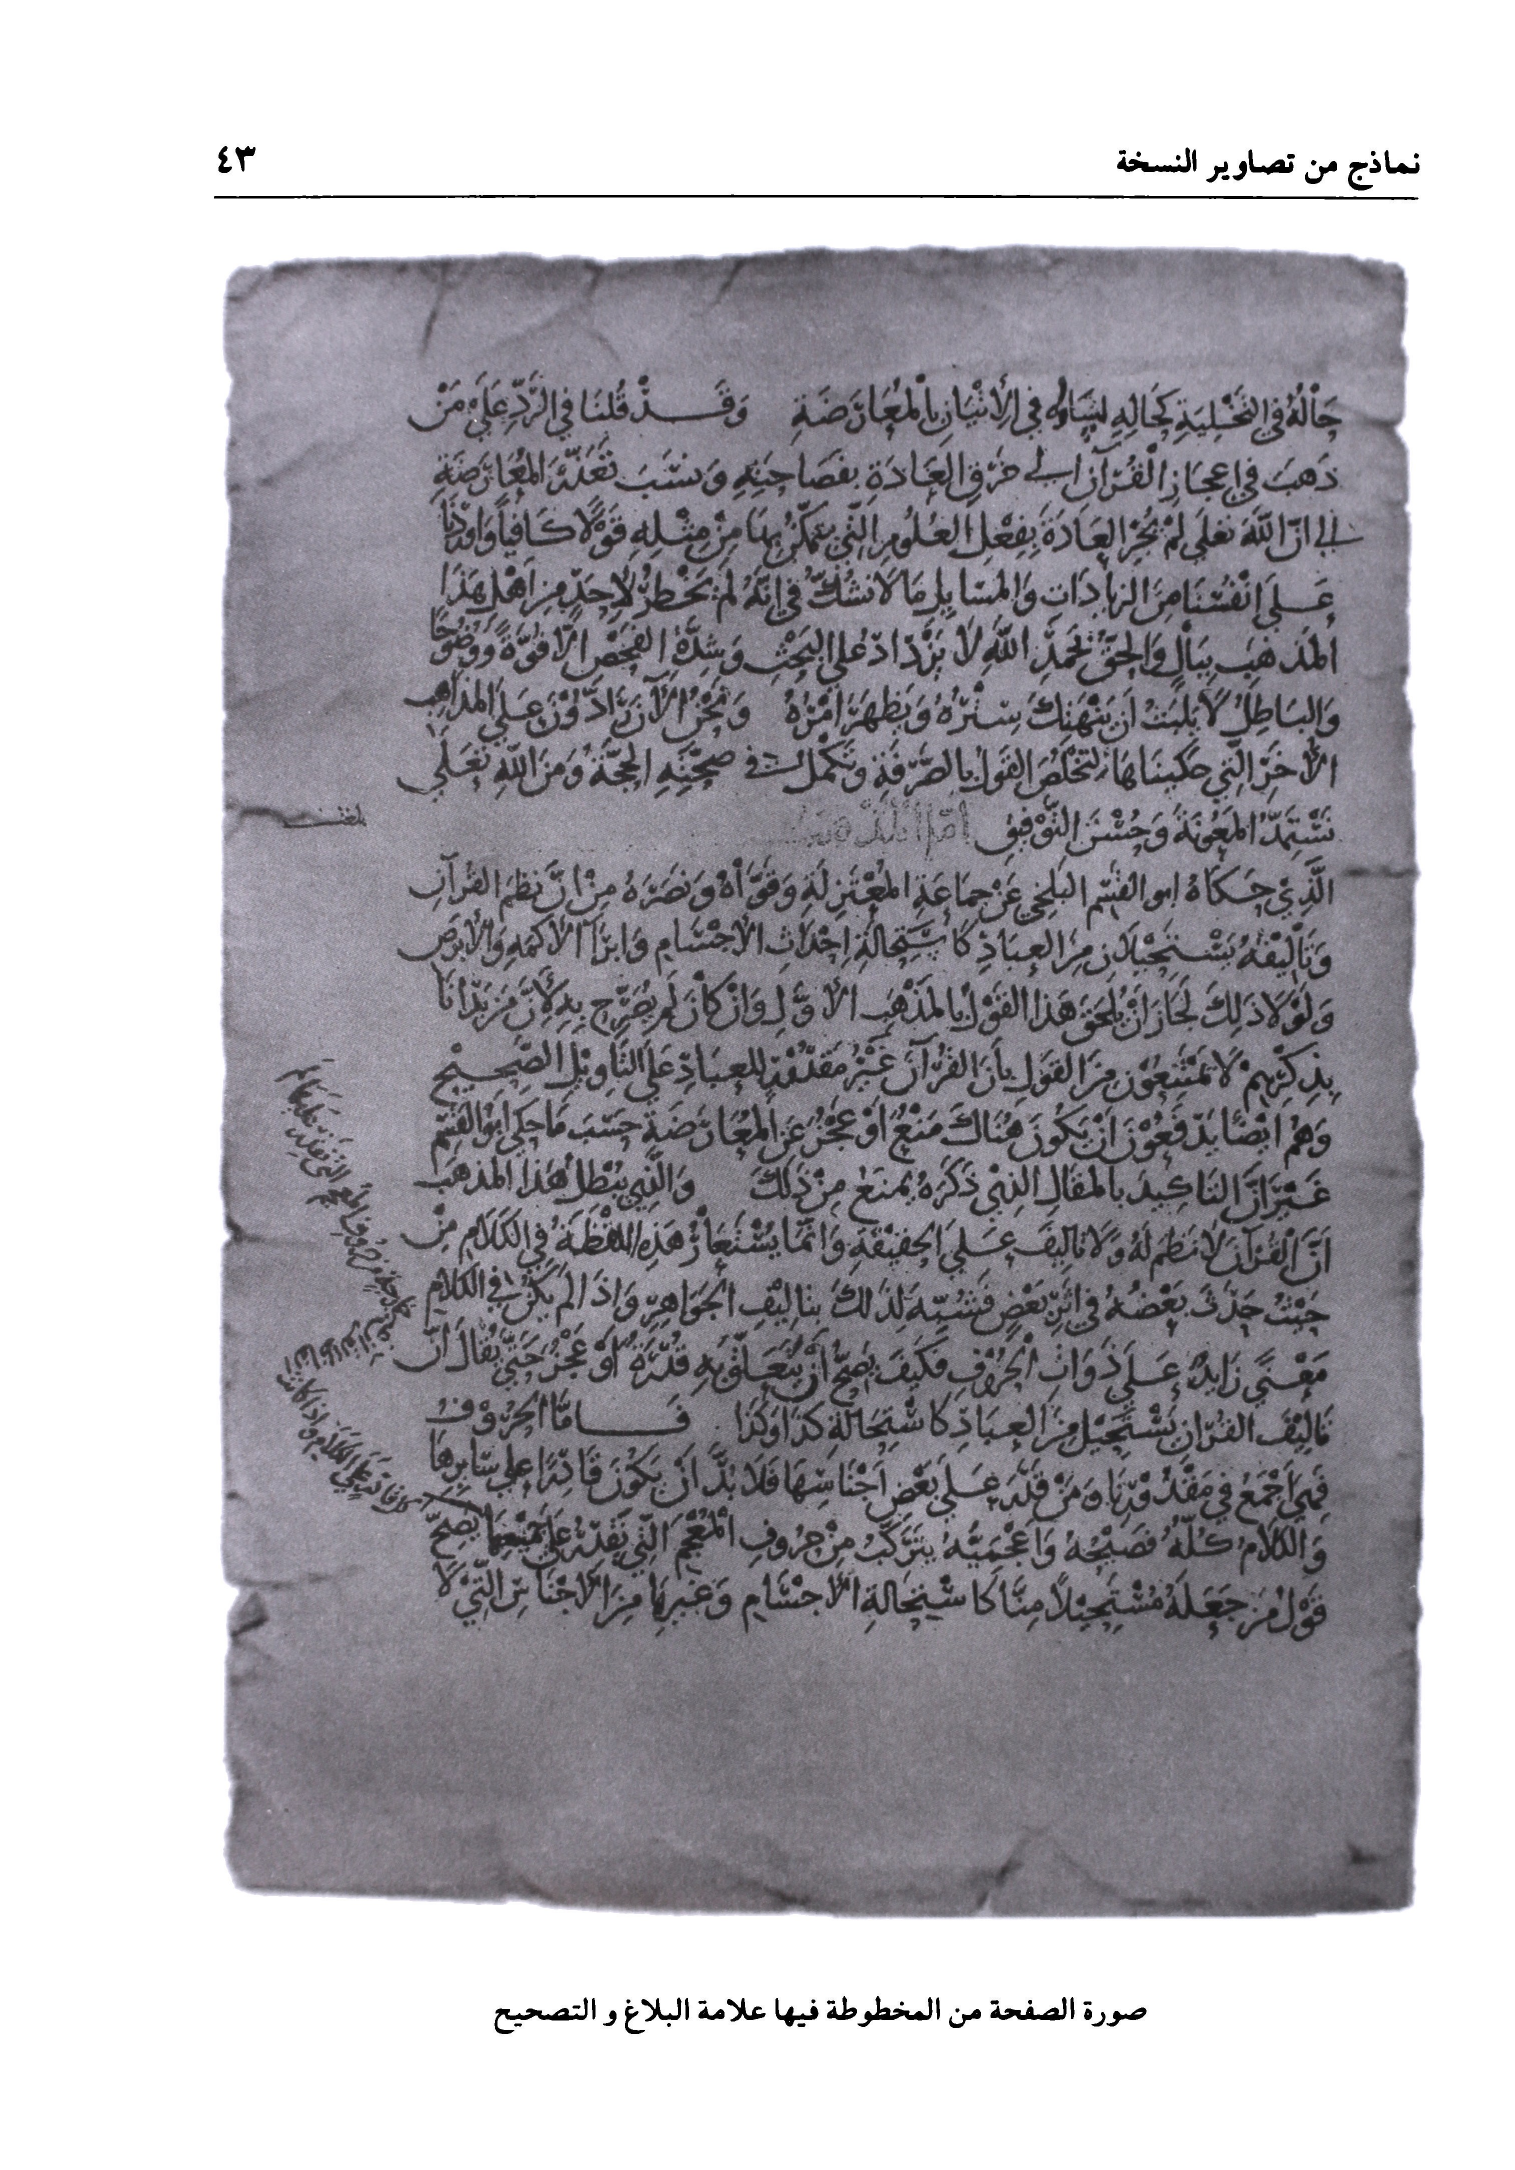 نماذج من تصاوير النسخة
٤٣
حَالهُ في التَخْلِيَةِ كحَالِهِ لتساوِيه في الأتيَانِ بالمُعَارَضَةِ وَقَدْ قُلنَا في الرَّدِّ عَلَى مَنْ
ذَهَبَ في اعجَازِ القُرآنِ الى خَرْقِ العَادَةِ بفَصَاحَتِهِ وَسَبَب تَعَذّرِ المُعَارَضَةِ
الى انّ اللّهَ تعَلى لمْ يُجْرِ العَادَةَ بِفِعْلِ العُلُومِ التّي يتمكّنُ بهَا مِنْ مِثْلِهِ قَوْلاً كَافياً وَاوْرَدْنَا
عَلَى انْفُسنَا مِنَ الزيَادَاتِ وَالمسَايل مَا لا نشُكّ في انّهُ لمْ يَخْطرْ لاحَدٍ مِن اهْلِ هَذا
المَذهَبِ بِبَالٍ وَالحَقّ بحَمْدِ اللّهِ لا يَزْدَادُ عَلى البَحْثِ وَشِدّةِ الفَحْصِ الّا قوّةً وَوُضُوحًا
وَالبَاطِلُ لا يَلبَث ان يَنْهَتِكَ سِتْرُهُ وَيَظهَرَ امْرُهُ وَنَحْنُ الآن رَادّوُنَ عَلى المذاهِب
الأُخَرِ الّتي حكَينَاهَا لتَخْلُصَ القَوْلُ بالصَّرْفَةِ وَتَكْمُل في صحّتِهِ الحجّةُ وَمِنَ اللّهِ تعَلى
نَسْتَمِدُّ المَعُونَةَ وَحُسْنَ التّوْفيِق امّا المذهَبُ
الّذِي حَكَاهُ ابو القسِم البَلخي عَنْ جمَاعَةِ المُعْتزِلَةِ وَقَوَّاهُ وَنَصَرَهُ مِنْ انّ نَظمَ القُرآنِ
وَتَأليفَهُ يَسْتَحيْلانِ مِن العِبَادِ كَاسْتِحَالَةِ احْدَاثِ الأجْسَامِ وَابرَآ الأكمَهِ وَالأبرَص
وَلَوْلا ذلِكَ لجَازَ انْ يُلحَقَ هَذا القَوْل بالمَذهَبِ الأوّلِ وَانْ كانَ لم يُصَرّح بِهِ لانّ مَنْ بَدَأنَا
بِذِكْرِهِمْ لا يمتَنِعُون مِن القَوْلِ بأنّ القُرْآنَ غَيْرُ مَقدُوْرٍ للعِبَادِ عَلَى التّاوِيْلِ الصَّحِيْحِ
وَهُمْ ايضًا يَدفَعُوْنَ انْ يَكُونَ هُنَاكَ مَنْعٌ اوْ عَجْزٌ عَن المُعَارَضَةِ حَسَبَ مَا حَكى ابوُ القسِم
غَيْرَ انَّ التاكيدَ بالمَقَال الّذِي ذكَرَهُ يمنَعُ مِنْ ذلكَ وَالّذِي يُبْطِلُ هَذا المذهَبَ
انَّ القُرآنَ لا نَظمَ لهُ وَلا تاليفَ عَلى الحَقيْقَةِ وَانّمَا يُسْتَعَارُ هَذِهِ اللفظَةُ في الكَلامِ مِنْ
حَيْثُ حَدَثَ بَعْضُهُ في اثرِ بَعْضٍ فَشُبّهَ لِذلكَ بِتَاليْفِ الجَوَاهِرِ وَاذَا لَمْ يَكُنْ في الكَلامِ
مَعْنىً زَايِدٌ عَلى ذوَاتِ الحُرُوفِ فكَيْفَ يَصِحّ أنْ يُتَعَلّقَ بِهِ قُدْرَةٌ اوْ عَجْزٌ حَتّى يُقَالَ انّ
تَالِيْفَ القُرآنِ يَسْتَحِيْل مِنَ العِبَادِ كَاسْتِحَالَةِ كَذا وَكَذَا فَامّا الحُرُوف
فهِي اجْمَع في مَقْدُوْرِنَا وَمَنْ قَدَرَ عَلى بَعْضِ اجْنَاسِهَا فَلا بُدّ انْ يَكُونَ قَادِرًا عَلى سَايِرِهَا
وَالكَلامُ كُلّهُ فَصِيْحُهُ وَاعْجَمِيّهُ يَتَرَكّبُ مِنْ حُرُوفِ المُعْجَمِ الّتي يَقْدِرُ عَلى جَمْيعِهَا يصحّ
قَوْلُ مَنْ جَعَلَهُ مُسْتَحِيْلاً مِنّا كَاسْتِحَالَةِ الأجْسَامِ وَغَيرِهَا مِنَ الأجْنَاسِ الّتي لا
بلغت
صورة الصفحة من المخطوطة فيها علامة البلاغ و التصحيح